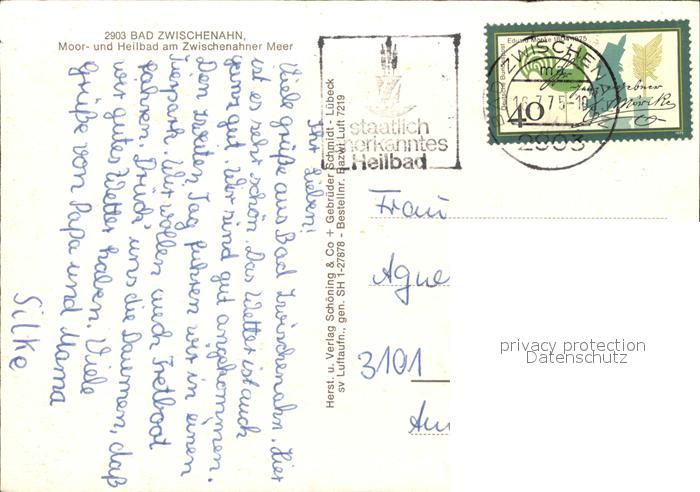 2903 BAD ZWISCHENAHN,
Moor- und Heilbad am Zwischenahner Meer
Ihr Lieben!
Viele Grüße aus Bad Zwischenahn. Hier
ist es sehr schön. Das Wetter ist auch
ganz gut. Wir sind gut angekommen.
Den zweiten Tag fuhren wir in einen
Tierpark. Wir wollen auch Tretboot
fahren. Drück' uns die Daumen, daß
wir gutes Wetter haben. Viele
Grüße von Papa und Mama
Silke
Herst. u. Verlag Schöning & Co + Gebrüder Schmidt - Lübeck
sv Luftaufn., gen. SH 1-27878 - Bestellnr. Bazwi Luft 7219
staatlich
anerkanntes
Heilbad
Eduard Mörike 1804-1875
Deutsche Bundespost
40
BAD ZWISCHEN
16.7.75-19
2903
Frau
Agne
3101
privacy protection
Datenschutz